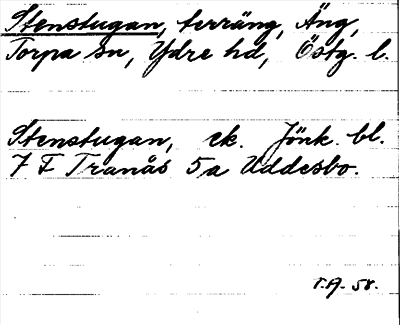 Stenstugan, terräng, Äng,
Torpa sn, Ydre hd, Östg. l.
Stenstugan, ek. Jönk. bl.
7 F Tranås 5a Uddesbo.
T.A. 58.